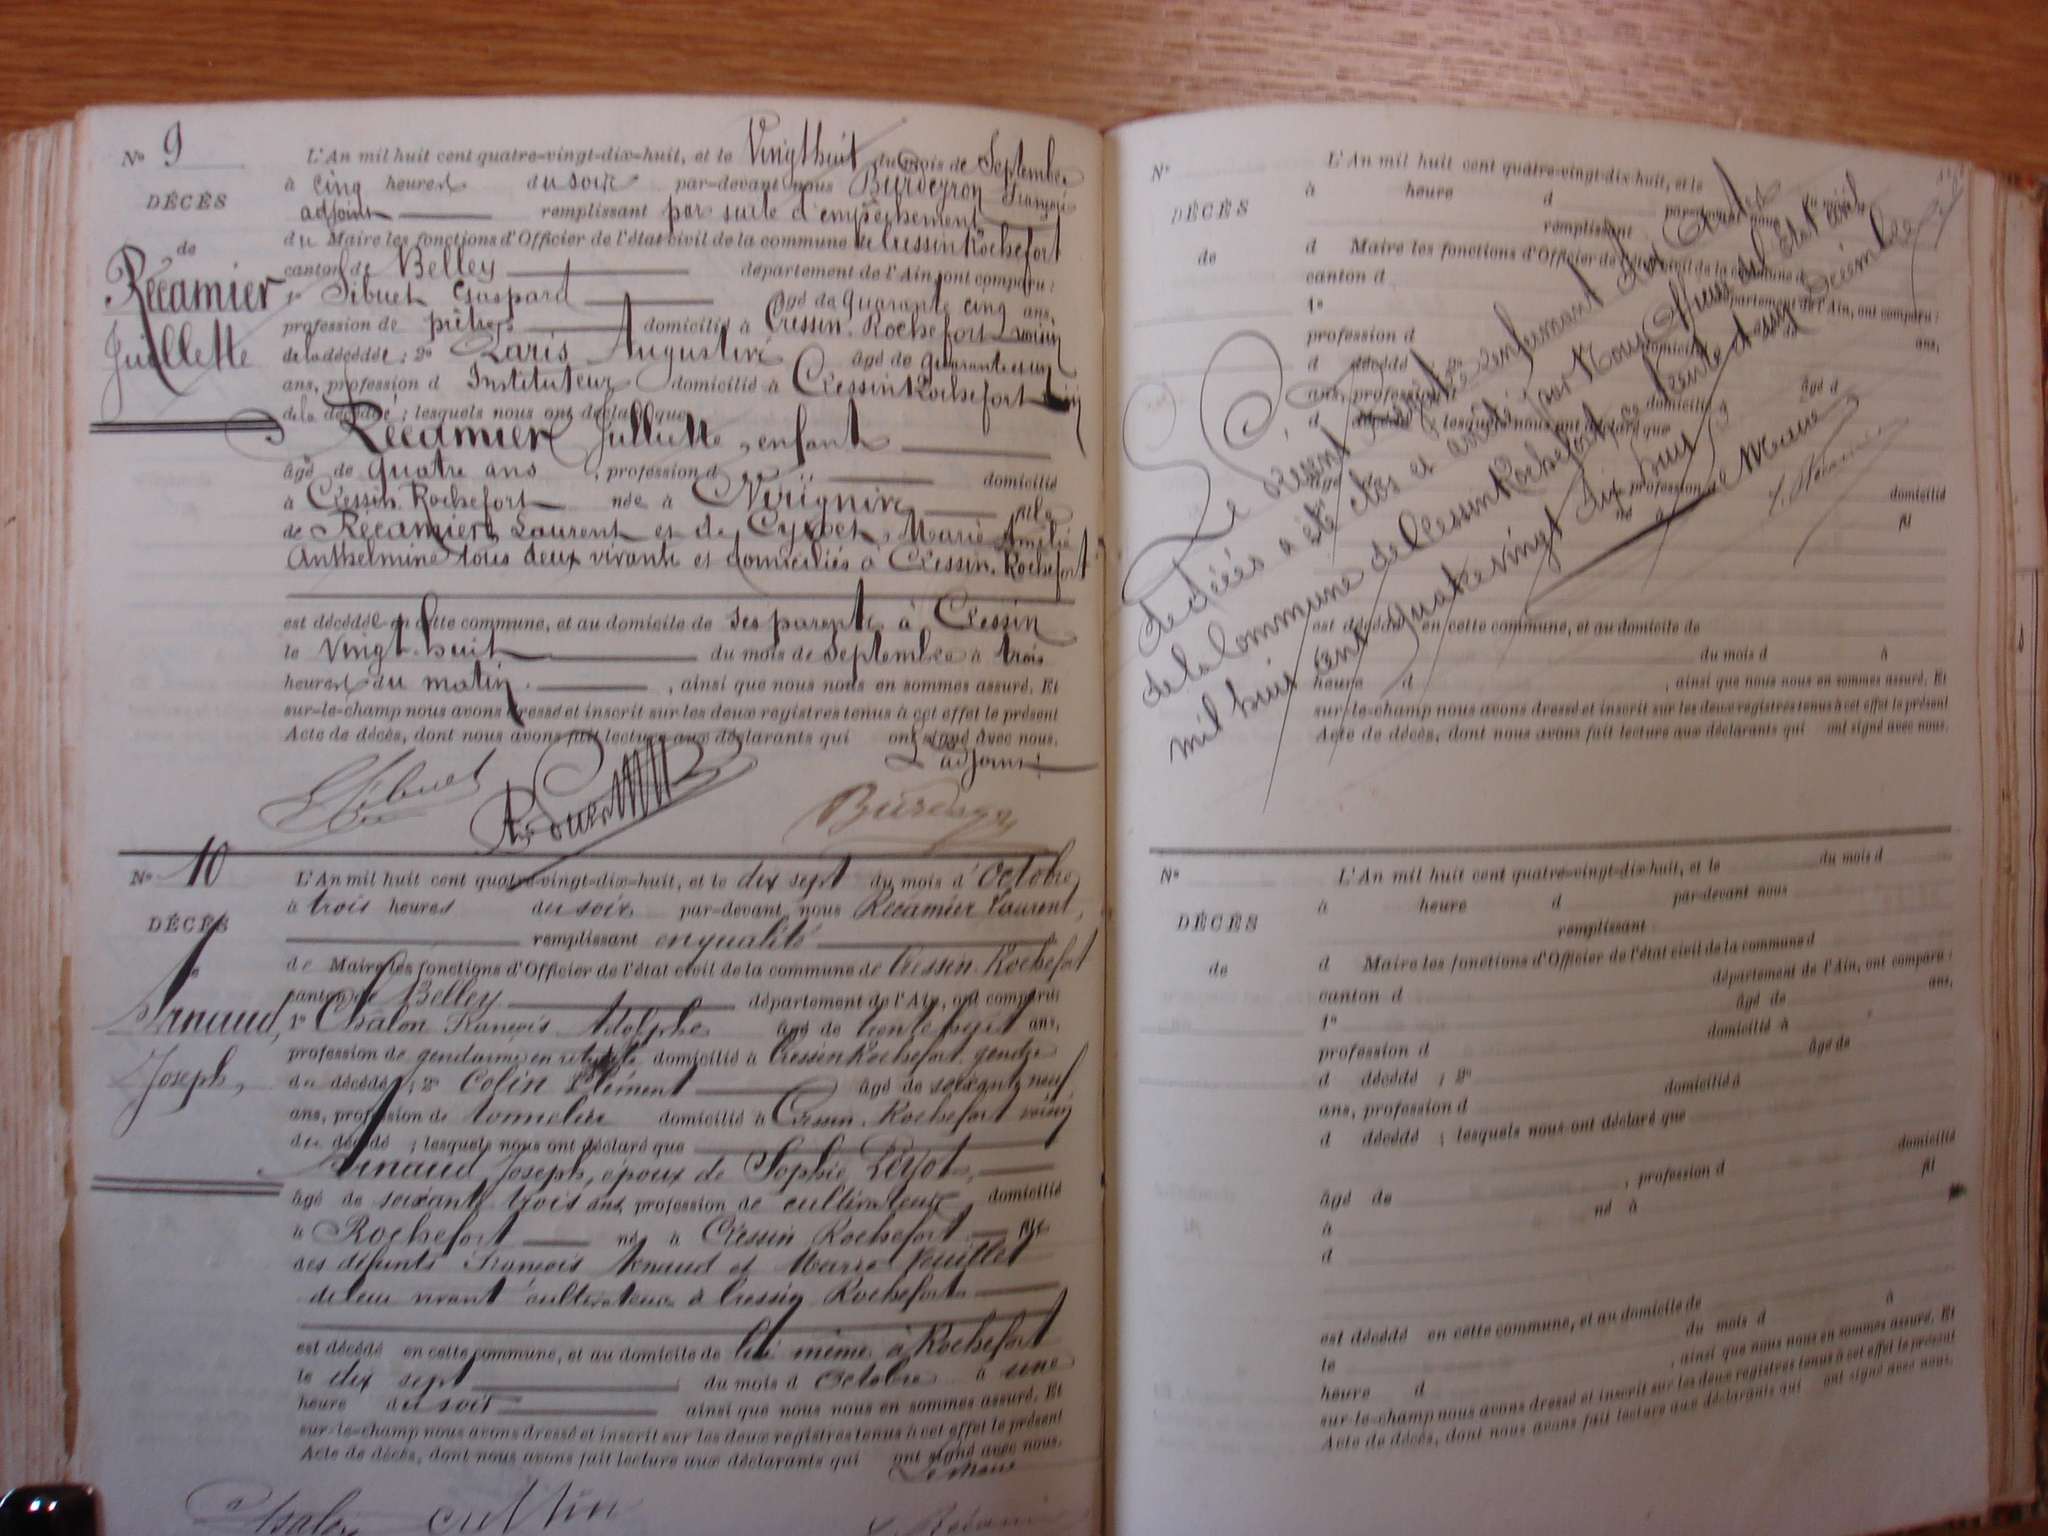 No 9
DÉCÈS
de
Récamier
Juillette
L'An mil huit cent quatre-vingt-dix-huit, et le Vingt huit du mois de Septembre
à cinq heures du soir par-devant nous Burdeyron François
adjoint remplissant par suite d'empêchement
du Maire les fonctions d'Officier de l'état civil de la commune de Cressin Rochefort
canton de Belley département de l'Ain, ont comparu :
1o Sibuet Gaspard âgé de quarante cinq ans,
profession de domicilié à Cressin-Rochefort voisin
de la décédée ; 2o Augustin âgé de quarante et un
ans, profession d Instituteur domicilié à Cressin Rochefort
de la décédée ; lesquels nous ont déclaré que
Récamier Julliette, enfant
âgé de quatre ans, profession d domicilié
à Cressin Rochefort née à Virignin fille
de Récamier Laurent et de Marie Amélie
Anthelmine tous deux vivants et domiciliés à Cressin-Rochefort
est décédée en cette commune, et au domicile de ses parents à Cressin
le Vingt-huit du mois de Septembre à trois
heures du matin, ainsi que nous nous en sommes assuré. Et
sur-le-champ nous avons dressé et inscrit sur les deux registres tenus à cet effet le présent
Acte de décès, dont nous avons fait lecture aux déclarants qui ont signé avec nous.
L'adjoint
Sibuet
No 10
DÉCÈS
Arnaud,
Joseph,
L'An mil huit cent quatre-vingt-dix-huit, et le dix sept du mois d'Octobre
à trois heures du soir par-devant nous Récamier Laurent,
remplissant en qualité
de Maire les fonctions d'Officier de l'état civil de la commune de Cressin-Rochefort
canton de Belley département de l'Ain, ont comparu
1o Chalon François Adolphe âgé de trente sept ans,
profession de gendarme en retraite domicilié à Cressin Rochefort, gendre
du décédé ; 2o Colin Clément âgé de soixante neuf
ans, profession de tonnelier domicilié à Cressin-Rochefort voisin
du décédé ; lesquels nous ont déclaré que
Arnaud Joseph, époux de Sophie
âgé de soixante trois ans, profession de cultivateur, domicilié
à Rochefort né à Cressin Rochefort fils
des défunts François Arnaud et Marie
de leur vivant cultivateurs à Cressin Rochefort
est décédé en cette commune, et au domicile de lui même à Rochefort
le dix sept du mois d Octobre à une
heure du soir ainsi que nous nous en sommes assuré. Et
sur-le-champ nous avons dressé et inscrit sur les deux registres tenus à cet effet le présent
Acte de décès, dont nous avons fait lecture aux déclarants qui ont signé avec nous.
Le Maire
Chalon
No
DÉCÈS
de
L'An mil huit cent quatre-vingt-dix-huit, et le
à heure d par-devant nous
remplissant
d Maire les fonctions d'Officier de l'état civil de la commune d
canton d département de l'Ain, ont comparu :
1o
profession d domicilié ans,
d décédé âgé d
ans, profession d domicilié
d décédé lesquels nous ont déclaré que
âgé profession d domicilié
né à fil
est décédé en cette commune, et au domicile de
du mois d à
heure d , ainsi que nous nous en sommes assuré. Et
sur-le-champ nous avons dressé et inscrit sur les deux registres tenus à cet effet le présent
Acte de décès, dont nous avons fait lecture aux déclarants qui ont signé avec nous.
Le Présent Registre renfermant dix Actes
de décès a été clos et arrêté par Nous Officier de l'état civil
de la Commune de Cressin Rochefort, ce trente et un Décembre
mil huit cent quatre vingt dix huit
Le Maire
No
DÉCÈS
de
L'An mil huit cent quatre-vingt-dix-huit, et le du mois d
à heure d par-devant nous
remplissant
d Maire les fonctions d'Officier de l'état civil de la commune d
canton d département de l'Ain, ont comparu :
1o âgé de ans,
profession d domicilié à
d décédé ; 2o âgé de
ans, profession d domicilié à
d décédé ; lesquels nous ont déclaré que
âgé de , profession d domicilié
à né à fil
d
est décédé en cette commune, et au domicile de
le du mois d à
heure d , ainsi que nous nous en sommes assuré. Et
sur-le-champ nous avons dressé et inscrit sur les deux registres tenus à cet effet le présent
Acte de décès, dont nous avons fait lecture aux déclarants qui ont signé avec nous.